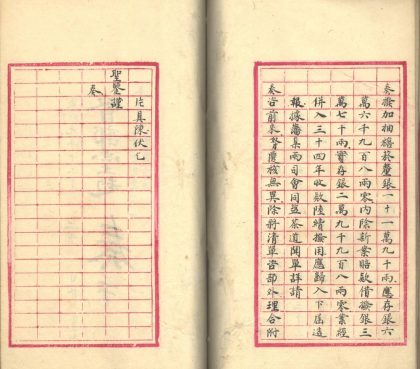 奏撥加抽纏菸釐銀一十一萬九千兩應存銀六
萬六千九百八兩零內除新案賠款借撥銀三
萬七千兩實存銀二萬九千九百八兩零業經
併入三十四年收款陸續撥用應歸入下屆造
報據藩臬兩司會同鹽茶道開單詳請
奏咨前來督覆核無異除將清單咨部外理合附
片具陳伏乞
聖鑒謹
奏